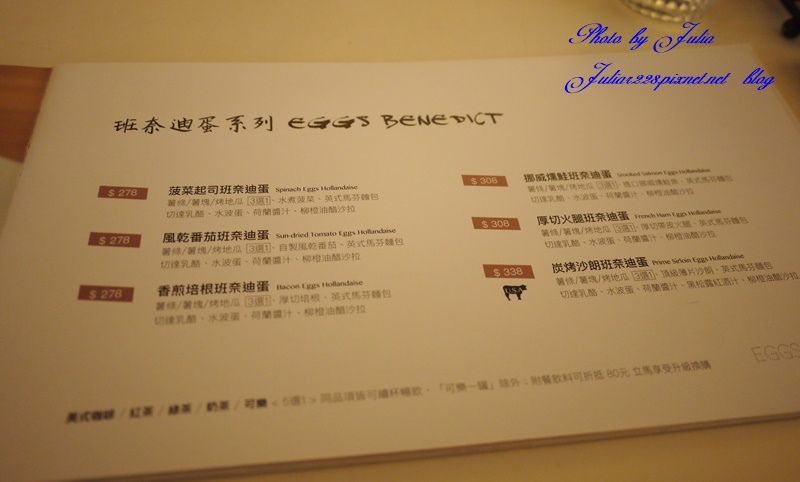 Photo by Julia
Juliar228pixnet.net blog
班奈迪蛋系列 EGGS BENEDICT
$ 278
菠菜起司班奈迪蛋 Spinach Eggs Hollandaise
薯條/薯塊/烤地瓜 3選1、水煮菠菜、英式馬芬麵包
切達乳酪、水波蛋、荷蘭醬汁、柳橙油醋沙拉
$ 278
風乾番茄班奈迪蛋 Sun-dried Tomato Eggs Hollandaise
薯條/薯塊/烤地瓜 3選1、自製風乾番茄、英式馬芬麵包
切達乳酪、水波蛋、荷蘭醬汁、柳橙油醋沙拉
$ 278
香煎培根班奈迪蛋 Bacon Eggs Hollandaise
薯條/薯塊/烤地瓜 3選1、厚切培根、英式馬芬麵包
切達乳酪、水波蛋、荷蘭醬汁、柳橙油醋沙拉
$ 308
挪威燻鮭班奈迪蛋 Smoked Salmon Eggs Hollandaise
薯條/薯塊/烤地瓜 3選1、進口挪威燻鮭魚、英式馬芬麵包
切達乳酪、水波蛋、荷蘭醬汁、柳橙油醋沙拉
$ 308
厚切火腿班奈迪蛋 French Ham Eggs Hollandaise
薯條/薯塊/烤地瓜 3選1、厚切帶皮火腿、英式馬芬麵包
切達乳酪、水波蛋、荷蘭醬汁、柳橙油醋沙拉
$ 338
炭烤沙朗班奈迪蛋 Prime Sirloin Eggs Hollandaise
薯條/薯塊/烤地瓜 3選1、頂級薄片沙朗、英式馬芬麵包
切達乳酪、水波蛋、荷蘭醬汁、黑松露紅酒汁、柳橙油醋沙拉
USA
EGGS
美式咖啡 / 紅茶 / 綠茶 / 奶茶 / 可樂 < 5選1 > 同品項皆可續杯暢飲，「可樂一罐」除外；附餐飲料可折抵 80元 立馬享受升級換購